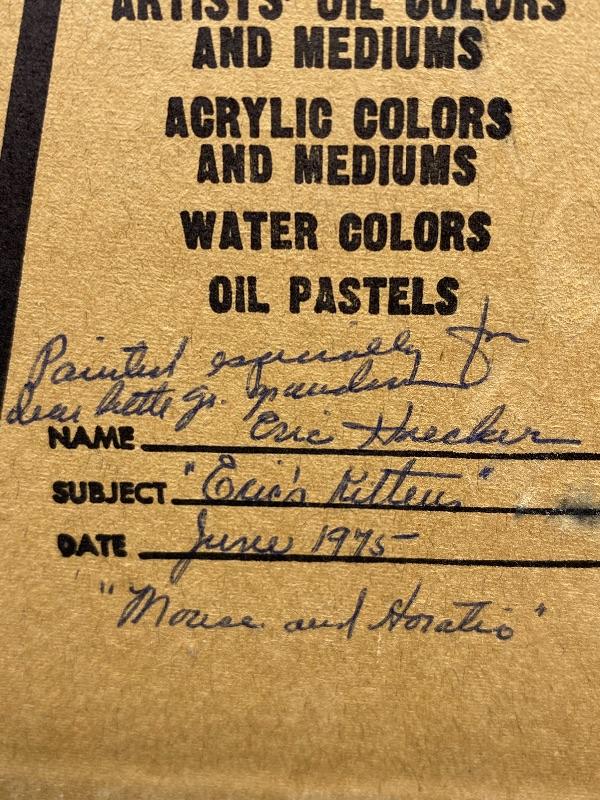 ARTISTS' OIL COLORS
AND MEDIUMS
ACRYLIC COLORS
AND MEDIUMS
WATER COLORS
OIL PASTELS
Painted especially for
dear little gr. grandson
NAME Eric Huecker
SUBJECT "Eric's Kittens"
DATE June 1975
"Mouse and Horatio"